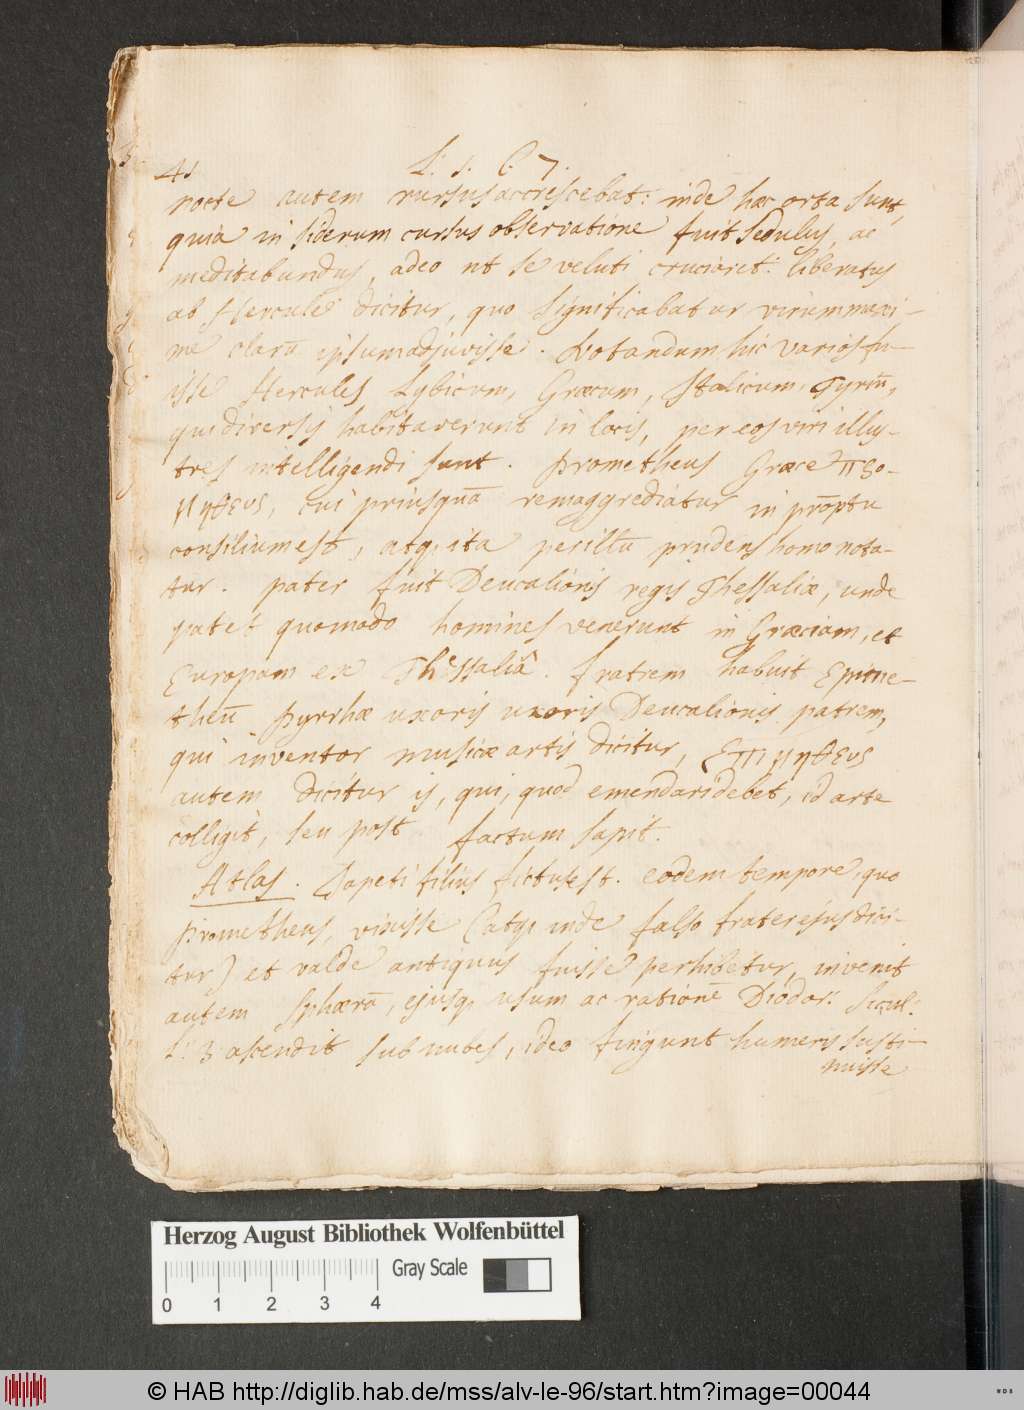 41 L: 1. C. 7.
nocte autem rursus accrescebat: inde hæc orta sunt,
quia in siderum cursus observatione fuit sedulus, ac
meditabundus, adeo ut se veluti cruciaret: liberatus
ab Hercule dicitur, quo significabatur virum maxi-
me clarū ipsum adjuvisse. Notandum hic varios fu-
isse Hercules Lybicum, Græcum, Italicum, Tyriū,
qui diversis habitaverunt in locis, per eos viri illus-
tres intelligendi sunt. Prometheus Græce προ-
μηθευς, cui priusquā rem aggrediatur in prōptu
consilium est, atq; ita per illū prudens homo nota-
tur. pater fuit Deucalionis regis Thessaliæ, unde
patet quomodo homines venerunt in Græciam, et
Europam ex Thessaliâ. fratrem habuit Epime-
theū Pyrrhæ uxoris uxoris Deucalionis patrem,
qui inventor musicæ artis dicitur, Επιμηθευς
autem dicitur is, qui, quod emendari debet, id arte
colligit, seu post factum sapit.
Atlas. Japeti filius fictus est. eodem tempore, quo
Prometheus, vixisse (atq; inde falso frater ejus dici-
tur) et valde antiquus fuisse perhibetur, invenit
autem Sphærā, ejusq; usum ac rationē Diodor: Sicul:
L: 3 ascendit sub nubes, ideo fingunt humeris susti-
nuisse
Herzog August Bibliothek Wolfenbüttel
Gray Scale
0 1 2 3 4
© HAB http://diglib.hab.de/mss/alv-le-96/start.htm?image=00044